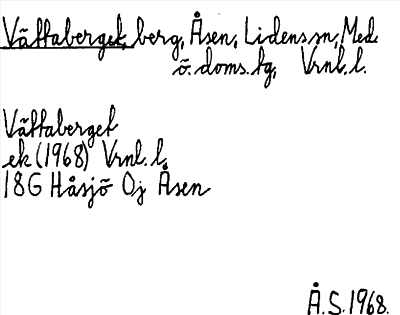 Vättaberget, berg, Åsen, Lidens sn, Med.
ö. doms. tg, Vrnl. l.
Vättaberget
ek (1968) Vrnl. l.
18G Håsjö Oj Åsen
Å.S. 1968.